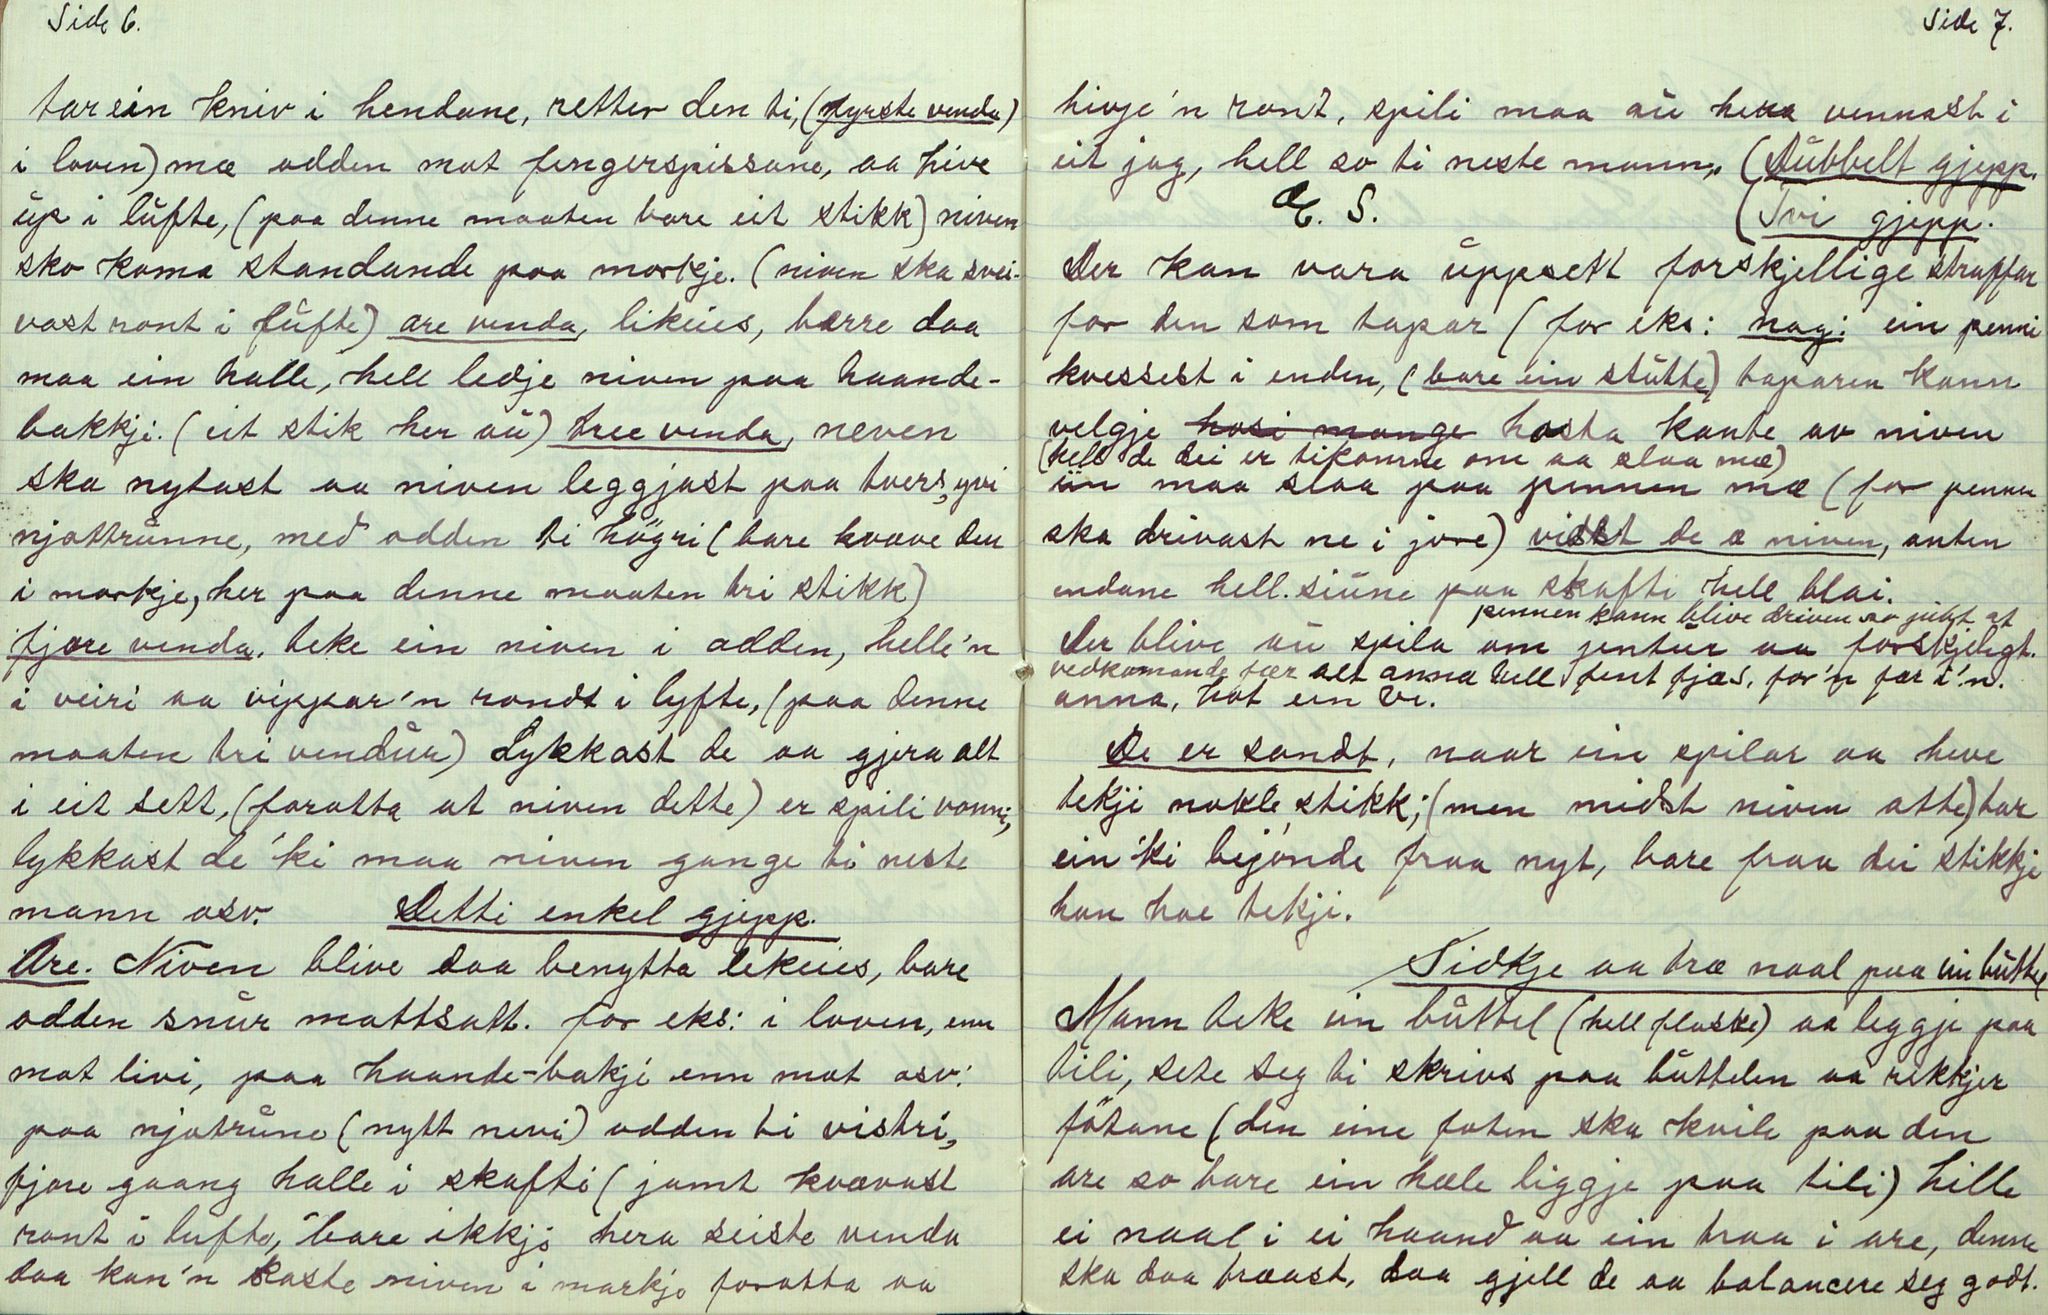 Side 6.
tar ein kniv i hendane, retter den ti, (fyrste venda)
i loven) mæ odden mot fingerspissane, aa hive
up i lufte, (paa denne maaten bare eit stikk) niven
sko koma standande paa morkje. (niven ska svei-
vast ront i lufte) are venda, likeies, bærre daa
maa ein halle, hell ledje niven paa haande-
bakkji. (eit stik her au) tree venda, neven
ska nytast aa niven leggjast paa tvers, yvi
njottrunne, med odden ti högri (bare kvæve den
i morkje, her paa denne maaten tri stikk)
fjore venda. teke ein niven i odden, helle'n
i veiri aa vippar'n rondt i lyfte, (paa denne
maaten tri vendur) Lykkast de aa gjera alt
i eit sett, (foratta at niven dette) er spili vonni,
lykkast de 'ki maa niven gange ti neste
mann osv. Detti enkel gjepp.
Are. Niven blive daa benytta likeies, bare
odden snur mottsatt. for eks: i loven, enn
mot livi, paa haande-bakji enn mot osv:
paa njotrune (nytt nevi) odden ti vistri,
fjore gaang halle i skafti (jamt kvævast
ront i lufte, bare ikkji hera seiste venda
daa kan'n kaste niven i markje foratta aa
Side 7.
hivje'n ront, spili maa au hera vennast i
eit jag, hell so ti neste mann. (Dubbelt gjepp.
S. (Tvi gjepp.
Der kan vara uppsett forskjellige straffar
for den som tapar (for eks: nag: ein penni
kvessest i enden, (bare ein stutte) taparen kann
velgje hosi mange hosta kante av niven
(hell de dei er tikomne om aa slaa mæ)
ein maa slaa paa pinnen mæ (for pennen
ska drivast ne i jore) vidt de æ niven, anten
endane hell. siune paa skafti hell blai.
pennen kann blive driven so jupt at
Der blive au spila om jentur aa forskjeligt.
vedkomande fær alt anna hell fint fjæs, for'n fær i'n.
anna, hot ein vi.
De er sandt, naar ein spilar aa heve
tekji nokle stikk; (men midst niven atte) tar
ein 'ki bejonde fraa nyt, bare fraa dei stikkje
han hae tekji.
Sidkje aa træ naal paa ein buttel
Mann teke ein buttel (hell flaske) aa leggje paa
tili, sete seg ti skrivs paa buttelen aa rekkjer
fötane (den eine foten ska kvile paa den
are so bare ein hæle liggje paa tili) hille
ei naal i ei haand aa ein traa i are, denne
ska daa træast, daa gjell de aa balancere seg godt.